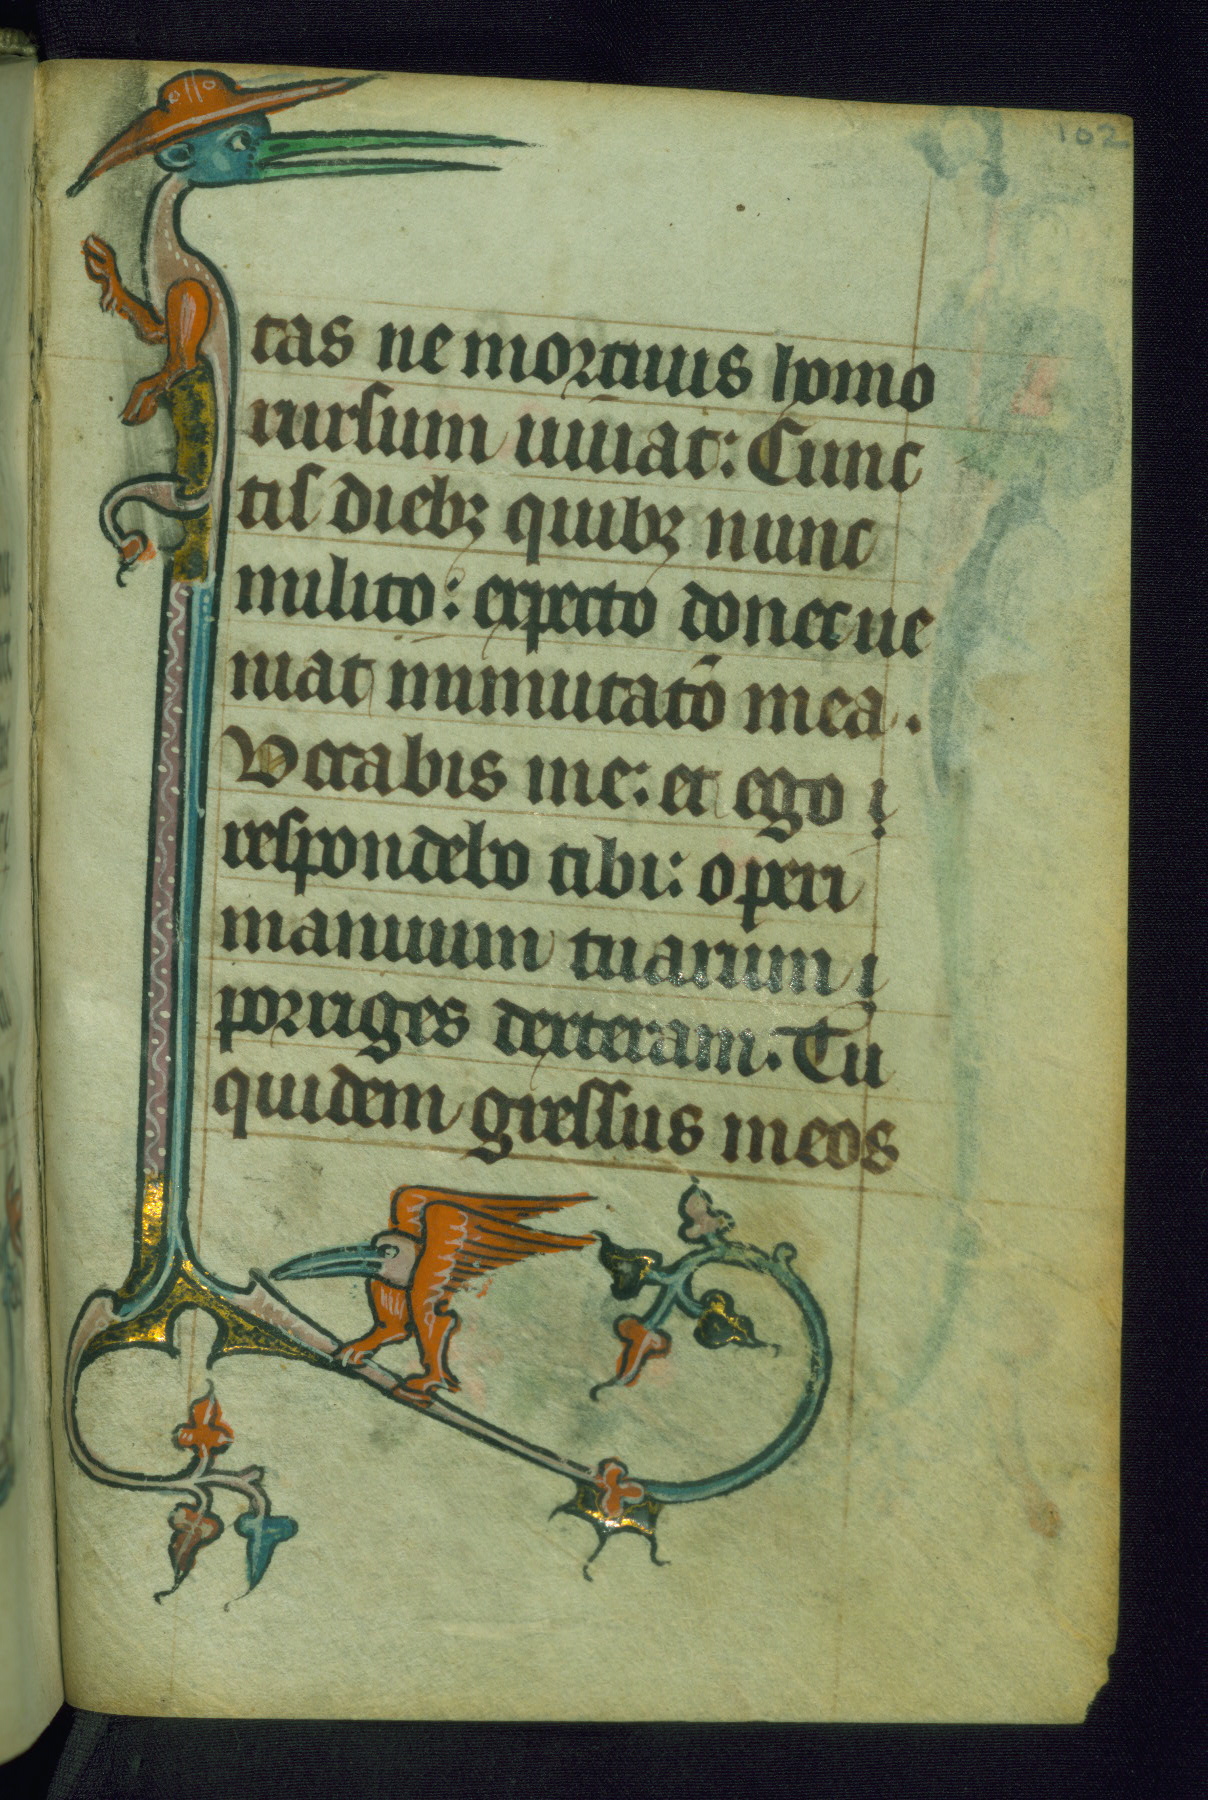 102
tas ne mortuus homo
rursum uiuat: Cunc
tis dieb; quib; nunc
milito: expecto donec ue
niat inmutatō mea.
Vocabis me: et ego
respondebo tibi: operi
manuum tuarum
porriges dexteram. Tu
quidem gressus meos